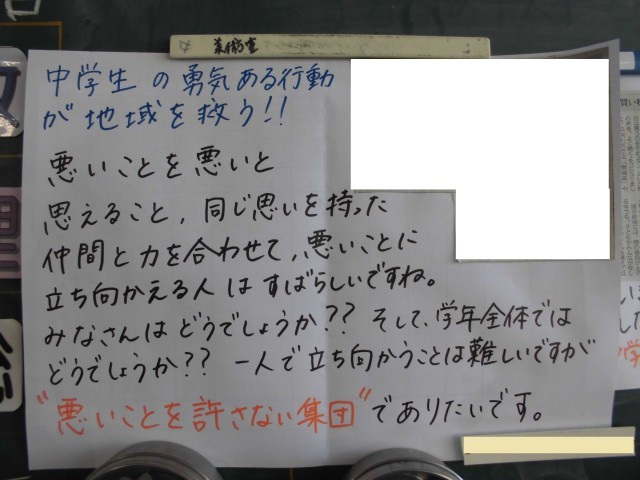 美術室
中学生の勇気ある行動
が地域を救う!!
悪いことを悪いと
思えること、同じ思いを持った
仲間と力を合わせて、悪いことに
立ち向かえる人はすばらしいですね。
みなさんはどうでしょうか?? そして、学年全体では
どうでしょうか?? 一人で立ち向かうことは難しいですが
"悪いことを許さない集団"でありたいです。